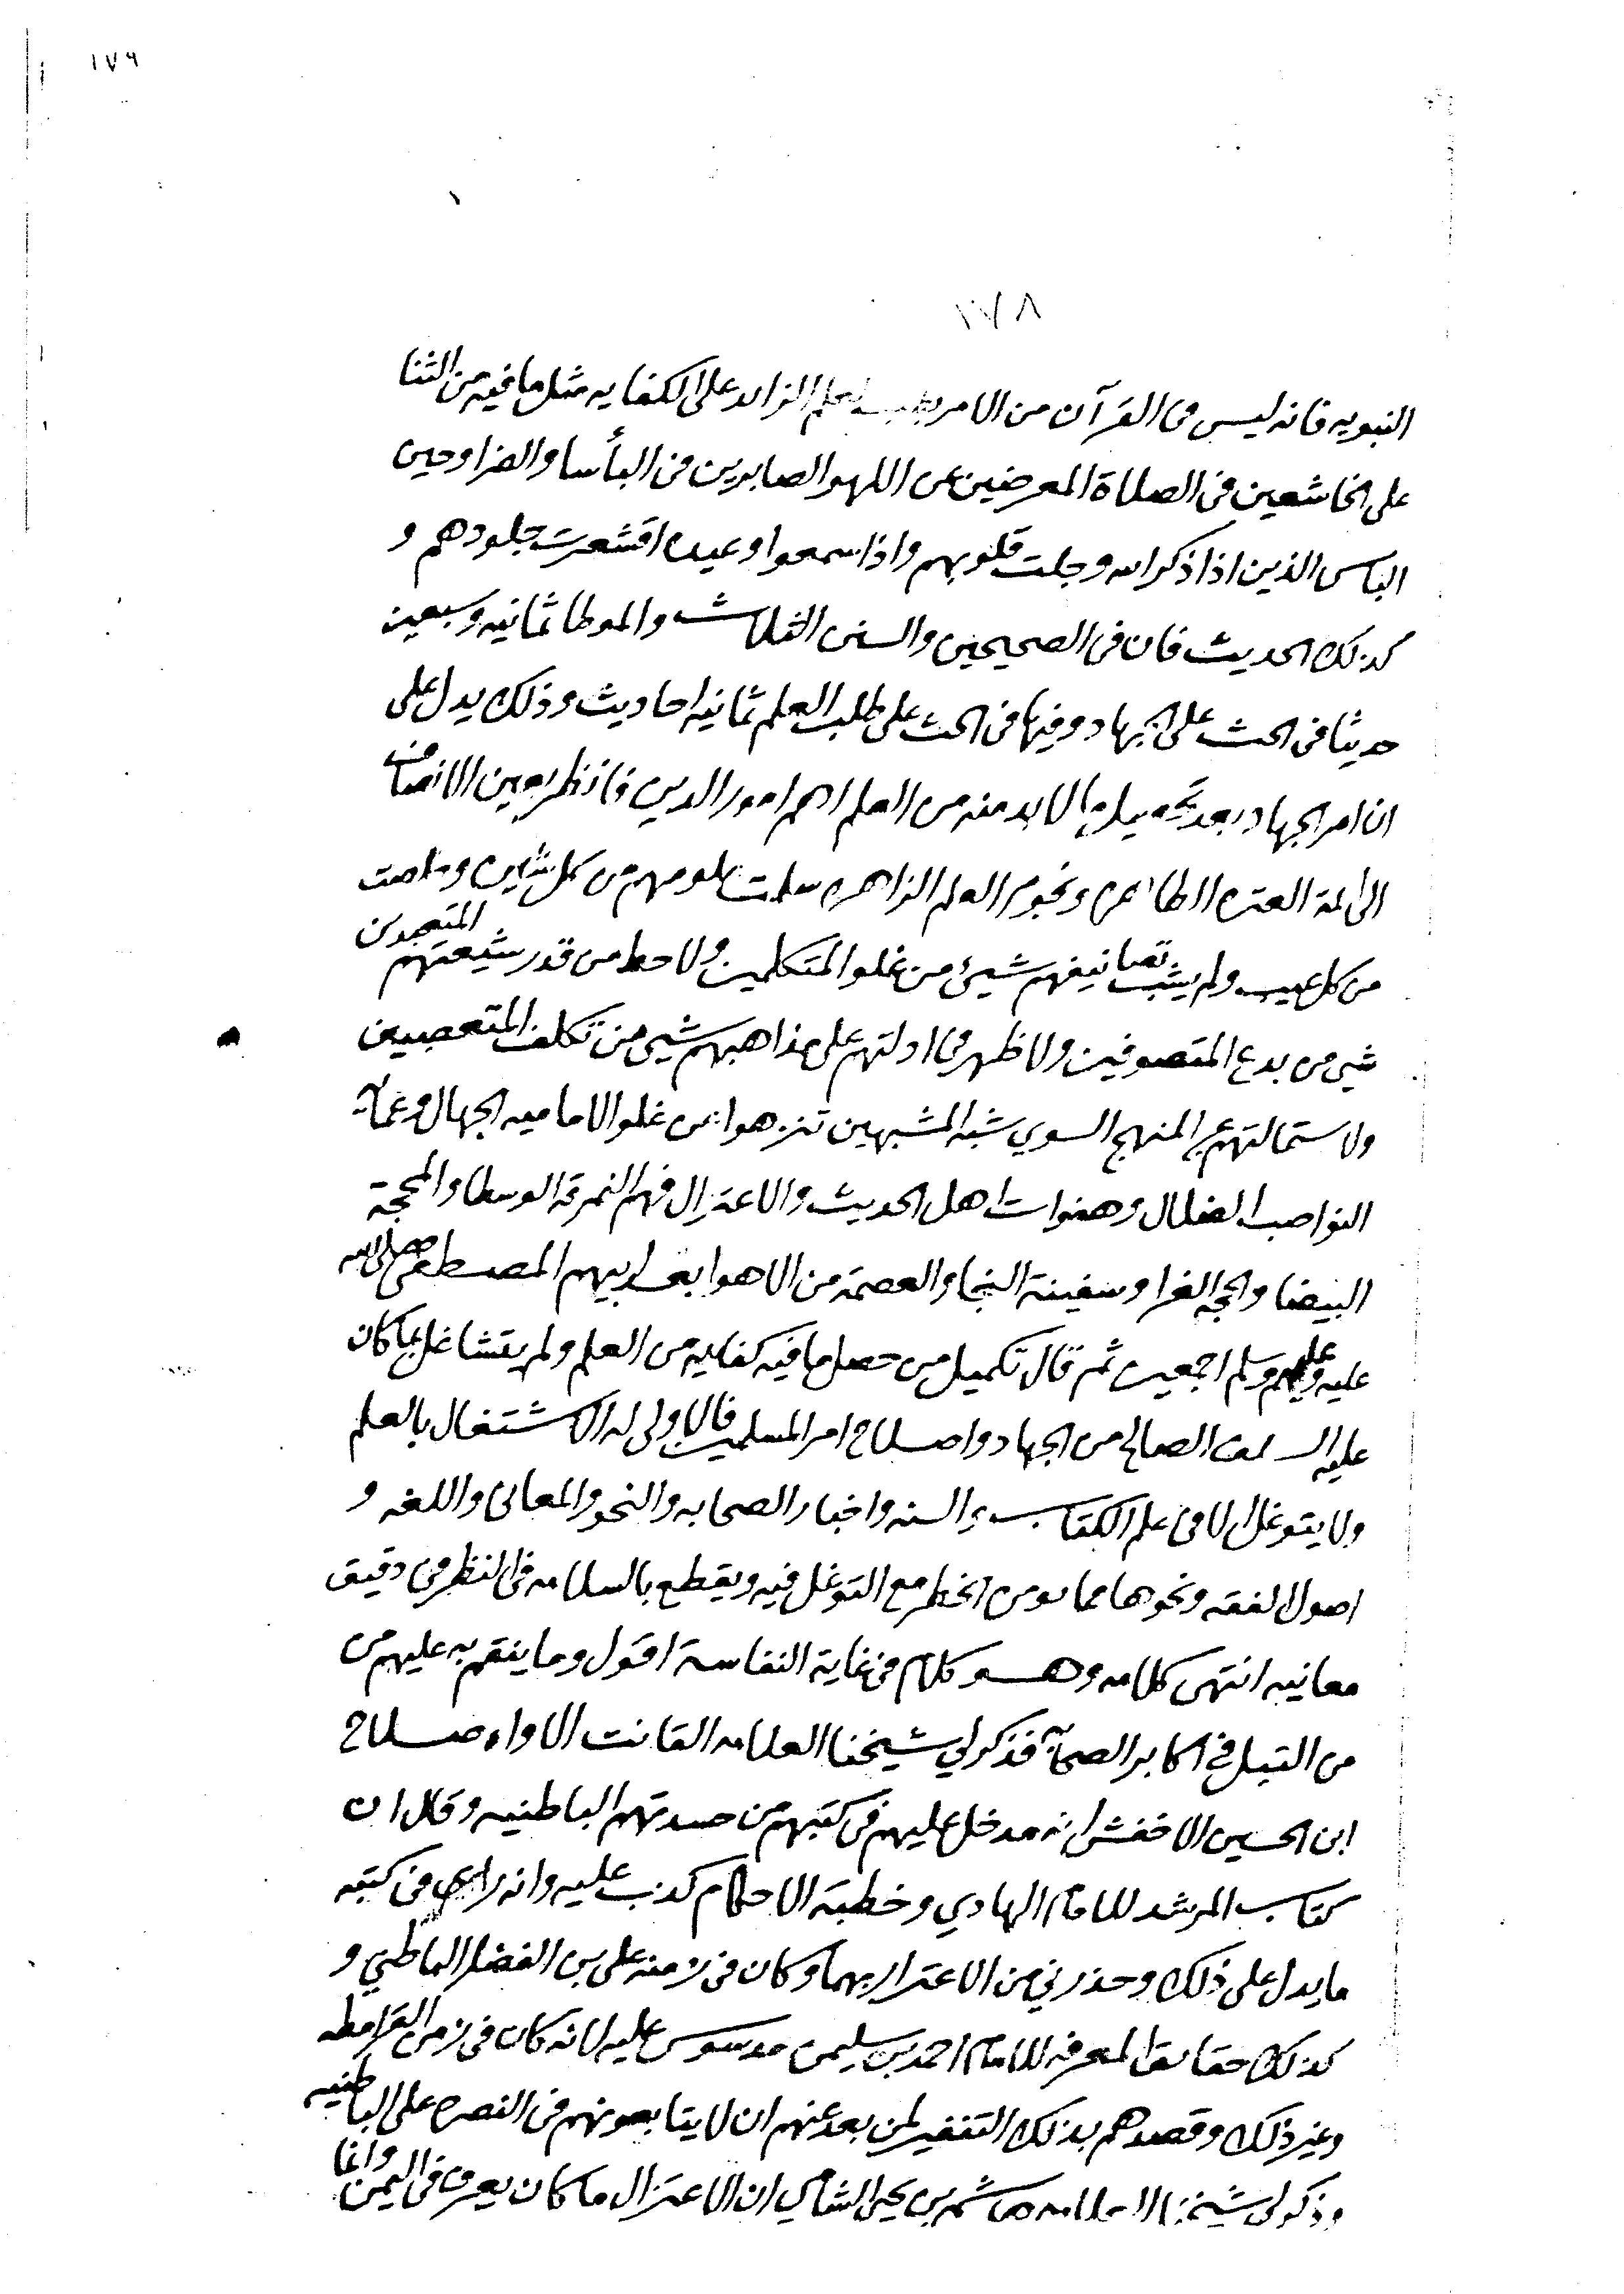 ١٧٩
١٧٨
النبويه فانه ليس فى القرآن من الامر بطلب العلم الزايد على الكفايه مثل ما فيه من الثنا
على الخاشعين فى الصلاة المعرضين عن اللهو الصابرين فى البأسا والضرا وحين
الباس الذين اذا ذكر الله وجلت قلوبهم واذا سمعوا وعيده اقشعرت جلودهم و
كذلك الحديث فان فى الصحيحين والسنن الثلاث والموطا ثمانيه وسبعين
حديثا فى الحث على الجهاد وفيها فى الحث على طلب العلم ثمانية احاديث وذلك يدل على
ان امر الجهاد بعد تحصيل ما لا بد منه من العلم اهم امور الدين فانظر بعين الانصاف
الى ائمة العتره الطاهره ونجوم العلم الزاهره سلمت علومهم من كل شين وخلصت
من كل عيب ولم يشب تصانيفهم شيئ من غلو المتكلمين ولا حط من قدر شيعتهم المتعبدين
شيى من بدع المتصوفين ولا ظهر فى ادلتهم على مذاهبهم شيى من تكلف المتعصبين
ولا استمالتهم عن المنهج السوي شبه المشبهين تنزهوا عن غلو الاماميه الجهال وعماية
النواصب الضلال وهفوات اهل الحديث والاعتزال فهم النمرقه الوسطا والمحجة
البيضا والحجه الغرا وسفينة النجا والعصمة من الاهوا بعد ابيهم المصطفى صلى الله
عليه وعليهم وسلم اجمعين ثم قال تكميل من حصل ما فيه كفايه من العلم ولم يتشاغل بما كان
عليه السلف الصالح من الجهاد واصلاح امر المسلمين فالاولى له الاشتغال بالعلم
ولا يتوغل الا فى علم الكتاب والسنه واخبار الصحابه والنحو والمعانى واللغه و
اصول الفقه ونحوها مما يومن الخطر مع التوغل فيه ويقطع بالسلامه فى النظر فى دقيق
معانيه انتهى كلامه وهو كلام فى غاية النفاسة اقول وما ينقم به عليهم من
من النيل فى اكابر الصحابة فذكر لي شيخنا العلامه القانت الاواه صلاح
ابن الحسين الاخفش انه مدخل عليهم فى كتبهم من حسدتهم الباطنيه وقال ان
كتاب المرشد للامام الهادي وخطبة الاحكام كذب عليه وانه راى فى كتبه
ما يدل على ذلك وحذرني من الاغترار بهما وكان فى زمنه على بن الفضل الباطني و
كذلك حقايق المعرفه للامام احمد بن سليمن مدسوس عليه لانه كان فى زمن القرامطه
وغير ذلك وقصدهم بذلك التنفير لمن بعد عنهم ان لا يتابعونهم فى النصره على الباطنيه
وذكر لى شيخنا العلامه هاشم بن يحيى الشامي ان الاعتزال ما كان يعرف فى اليمن وانما